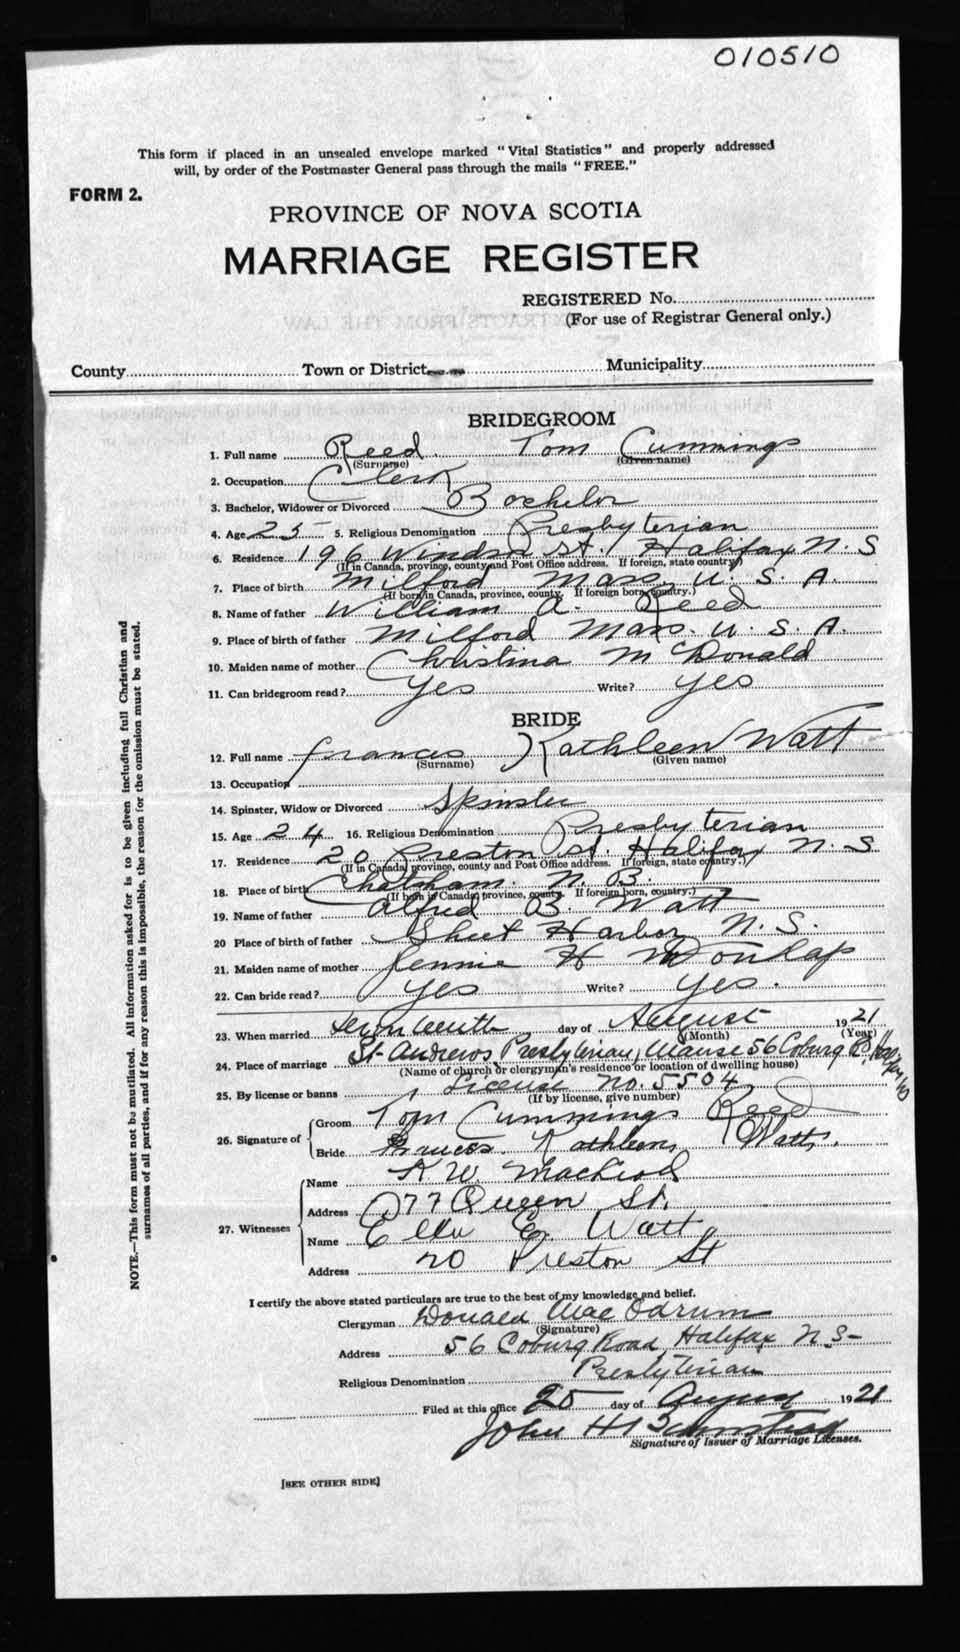 010510
This form if placed in an unsealed envelope marked "Vital Statistics" and properly addressed
will, by order of the Postmaster General pass through the mails "FREE."
FORM 2.
PROVINCE OF NOVA SCOTIA
MARRIAGE REGISTER
REGISTERED No.
(For use of Registrar General only.)
County Town or District Municipality
BRIDEGROOM
1. Full name Reed. Tom Cummings
(Surname) (Given name)
2. Occupation Clerk
3. Bachelor, Widower or Divorced Bachelor
4. Age 25 5. Religious Denomination Presbyterian
6. Residence 196 Windsor St. Halifax N. S
(If in Canada, province, county and Post Office address. If foreign, state country)
7. Place of birth Milford Mass. U. S. A.
(If born in Canada, province, county. If foreign born, country.)
8. Name of father William A. Reed
9. Place of birth of father Milford Mass. U. S. A.
10. Maiden name of mother Christina McDonald
11. Can bridegroom read? Yes Write? Yes
BRIDE
12. Full name Frances Kathleen Watt
(Surname) (Given name)
13. Occupation
14. Spinster, Widow or Divorced Spinster
15. Age 24 16. Religious Denomination Presbyterian
17. Residence 20 Preston St. Halifax N. S
(If in Canada, province, county and Post Office address. If foreign, state country.)
18. Place of birth Chatham. N. B.
(If born in Canada, province, county. If foreign born, country.)
19. Name of father Alfred B. Watt
20 Place of birth of father Sheet Harbor N. S.
21. Maiden name of mother Jennie H Dunlap
22. Can bride read? Yes Write? Yes.
23. When married Seventeenth day of August 1921
(Month) (Year)
24. Place of marriage St. Andrews Presbyterian, Manse 56 Coburg Rd, Halifax NS
(Name of church or clergyman's residence or location of dwelling house)
25. By license or banns License No. 5504
(If by license, give number)
26. Signature of Groom Tom Cummings Reed
Bride Frances Kathleen Watt.
27. Witnesses Name K W. MacLeod
Address 77 Queen St.
Name Ella E. Watt
Address 20 Preston St
I certify the above stated particulars are true to the best of my knowledge and belief.
Clergyman Donald MacOdrum
(Signature)
Address 56 Coburg Road, Halifax N S-
Religious Denomination Presbyterian
Filed at this office 20 day of August 1921
John H
Signature of Issuer of Marriage Licenses.
[SEE OTHER SIDE]
NOTE.—This form must not be mutilated. All information asked for is to be given including full Christian and
surnames of all parties, and if for any reason this is impossible, the reason for the omission must be stated.